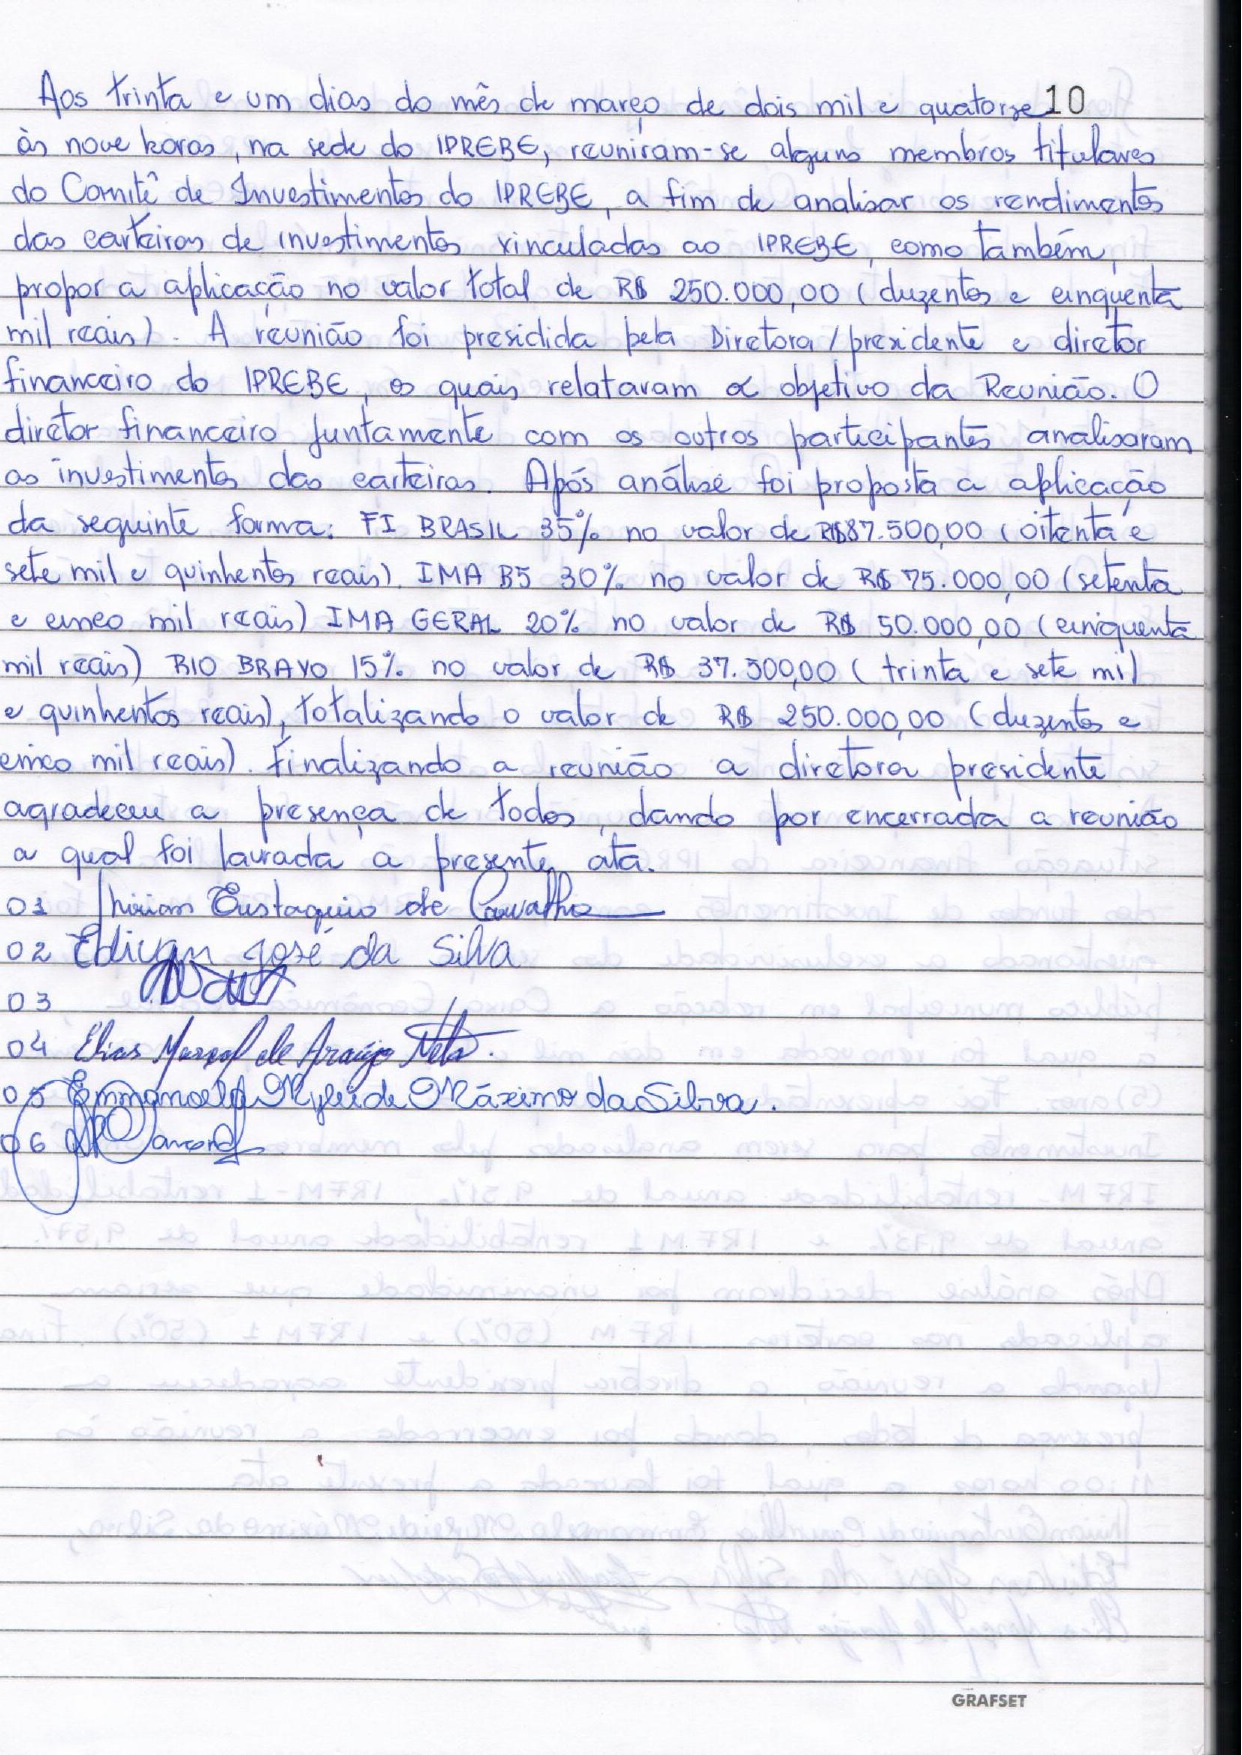 Aos trinta e um dias do mês de março de dois mil e quatorze 10
às nove horas, na sede do IPREBE, reuniram-se alguns membros titulares
do Comitê de Investimentos do IPREBE, a fim de analisar os rendimentos
das carteiras de investimentos vinculadas ao IPREBE, como também,
propor a aplicação no valor total de R$ 250.000,00 (duzentos e cinquenta
mil reais). A reunião foi presidida pela Diretora/presidente e diretor
financeiro do IPREBE, os quais relataram o objetivo da Reunião. O
diretor financeiro juntamente com os outros participantes analisaram
os investimentos das carteiras. Após análise foi proposta a aplicação
da seguinte forma: FI BRASIL 35% no valor de R$87.500,00 (oitenta e
sete mil e quinhentos reais). IMA B5 30% no valor de R$ 75.000,00 (setenta
e cinco mil reais) IMA GERAL 20% no valor de R$ 50.000,00 (cinquenta
mil reais) RIO BRAVO 15% no valor de R$ 37.500,00 (trinta e sete mil
e quinhentos reais), totalizando o valor de R$ 250.000,00 (duzentos e
cinco mil reais). Finalizando a reunião a diretora presidente
agradeceu a presença de todos, dando por encerrada a reunião
a qual foi lavrada a presente ata.
01 Eustaquio de Carvalho
02 Edivan José da Silva
03
04 Elias Marçal de Araújo Neto.
05 Emmanoela Mylleide Máximo da Silva.
06
GRAFSET